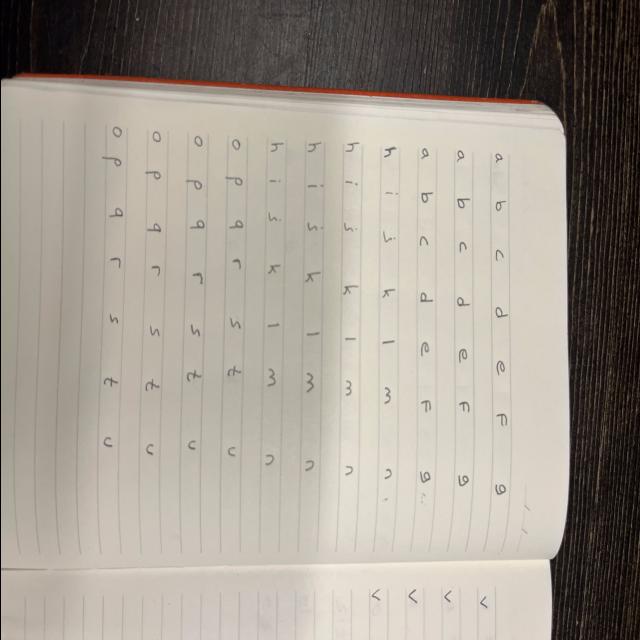 a b c d e F g
a b c d e F g
a b c d e F g
h i j k l m n
h i j k l m n
h i j k l m n
h i j k l m n
o p q r s t u
o p q r s t u
o p q r s t u
o p q r s t u
v
v
v
v